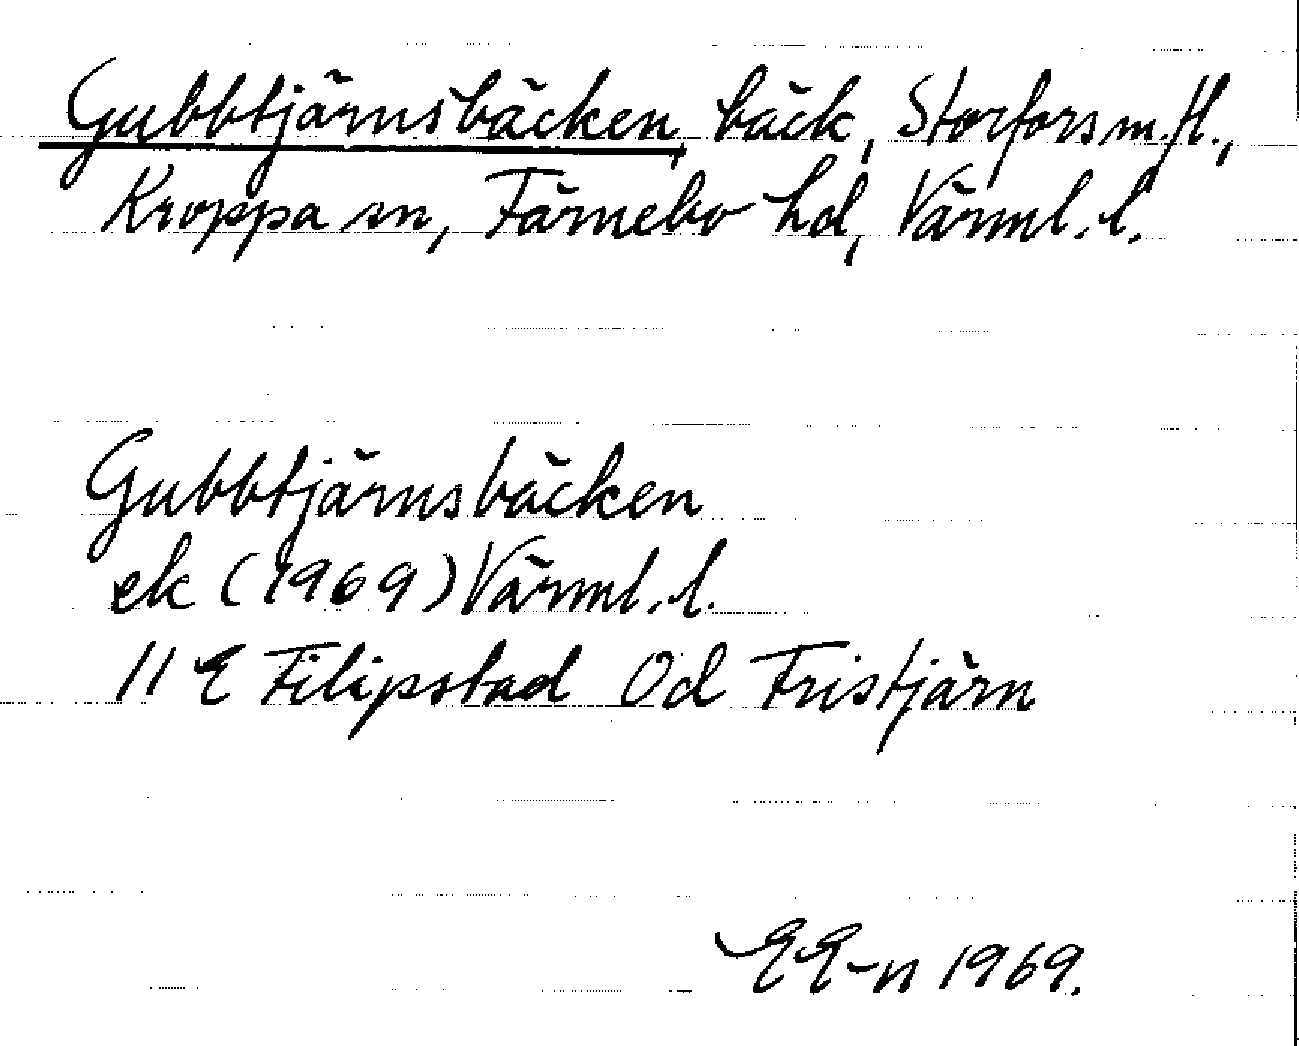 Gubbtjärnsbäcken, bäck, Storfors m.fl.,
Kroppa sn, Färnebo hd, Värml. l.
Gubbtjärnsbäcken
ek (1969) Värml. l.
11 E Filipstad 0d Fristjärn
EE-n 1969.